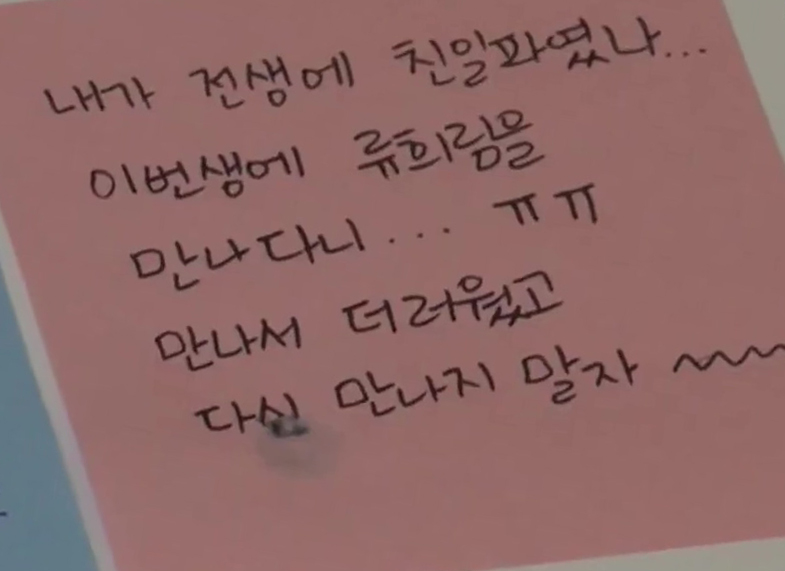 내가 전생에 친일파였나...
이번생에 류희림을
만나다니... ㅠㅠ
만나서 더러웠고
다신 만나지 말자 ~~~